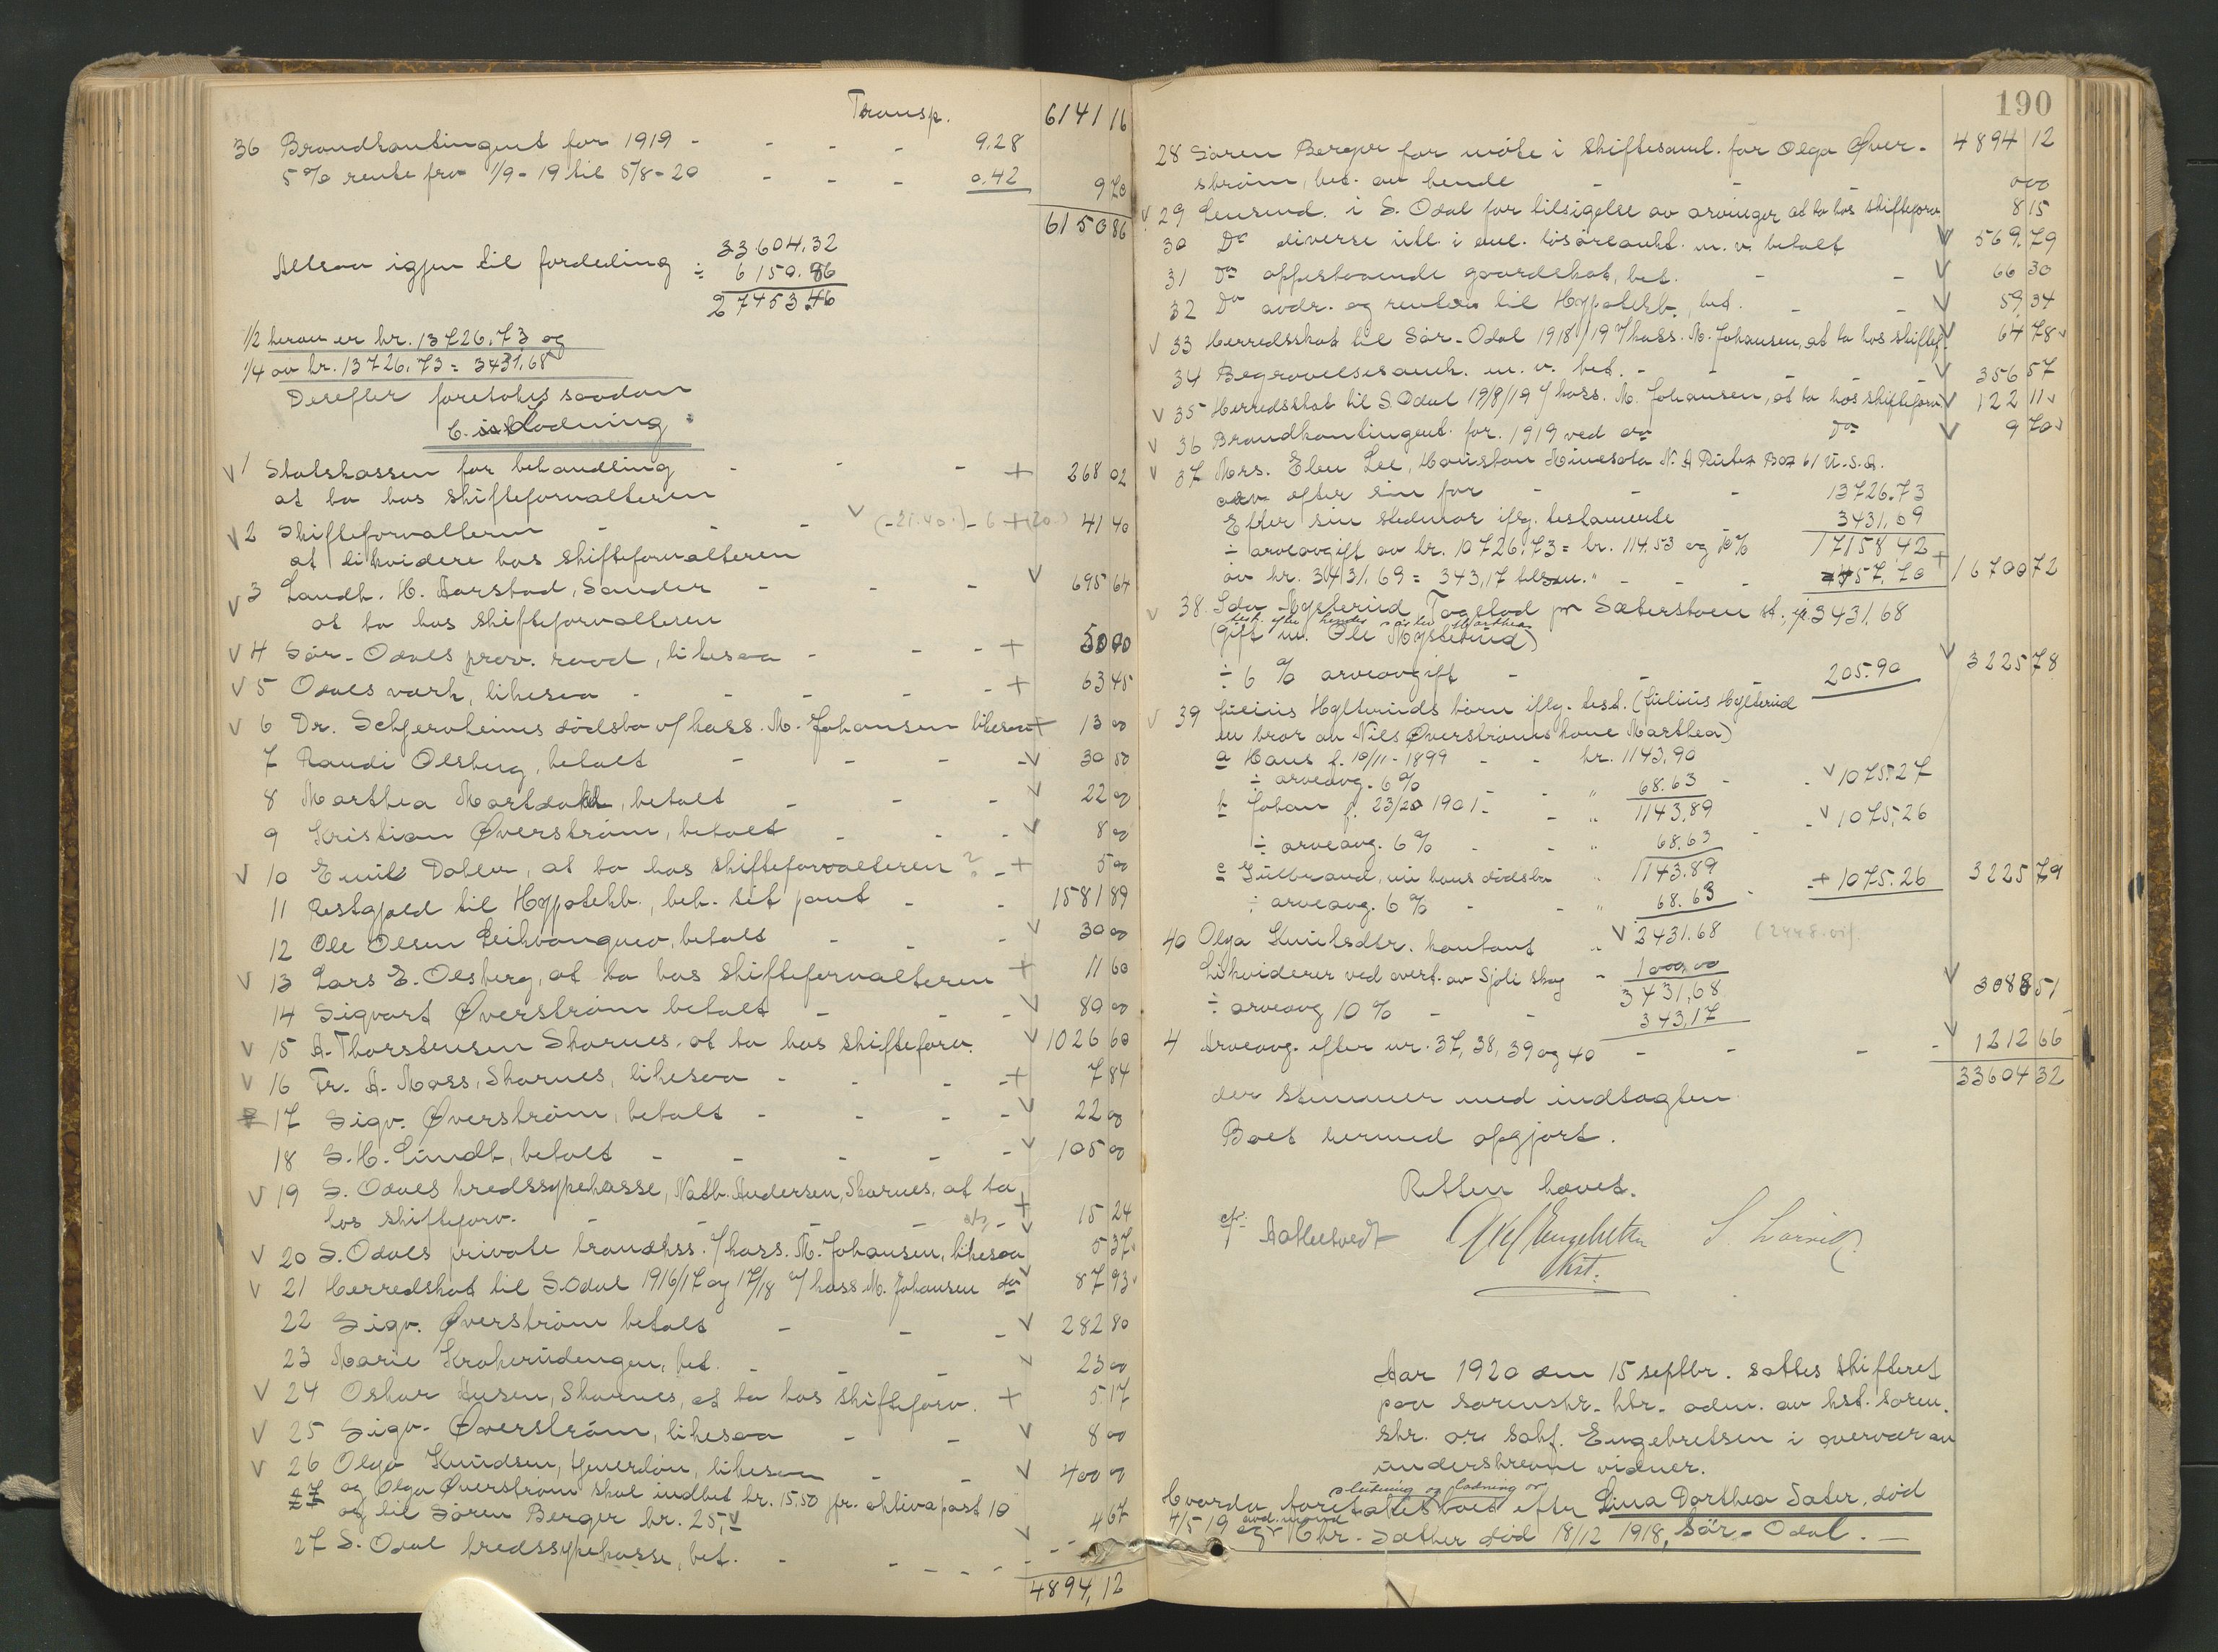 Transp. 6141 16
36 Brandkontingent for 1919 - - - - 9.28
5 % rente fra 1/9-19 til 5/8-20 - - - 0.42 9 70
6150 86
33604.32
Altsaa igjen til fordeling ÷ 6150.86
27453.46
1/2 herav er kr. 13726.73 og
1/4 av kr. 13726.73 = 3431.68
Derefter foretokes saadan
C. Lodning:
√ 1 Statskassen for behandling - - - + 268 02
at ta hos skifteforvalteren
√ 2 Skifteforvalteren - - - √ 41 40
at likvidere hos skifteforvalteren
√ 3 Landh. H. Harstad, Sander - - - √ 695 64
at ta hos skifteforvalteren
√ 4 Sør-Odals prov. raad, likesaa - - - +
√ 5 Odals værk, likesaa - - - - - + 63 45
√ 6 Dr. dødsbo v/ kass. M. Johansen likesaa + 13 00
7 Randi Olsberg, betalt - - - - √ 30 50
8 Marthea betalt - - - √ 22 00
9 Kristian Øverstrøm, betalt - - - √ 8 00
√ 10 Emil Dahlen, at ta hos skifteforvalteren ? - + 5 00
11 Restgjæld til Hypotekb., beh. sit pant - - 1581 89
12 Ole Olsen betalt - - - √ 30 00
√ 13 Lars E. Olsberg, at ta hos skifteforvalteren + 11 60
14 Sigvart Øverstrøm betalt - - - √ 80 00
√ 15 A. Thorstensen Skarnes, at ta hos skifteforv. √ 1026 60
√ 16 Fr. A. Moss, Skarnes, likesaa - - - + 7 84
17 Sigv. Øverstrøm, betalt - - - - √ 22 00
18 S. H. Lundt, betalt - - - - - √ 105 00
√ 19 S. Odals kredssykekasse, Nath. Andersen, Skarnes, at ta
hos skifteforv. - - - - + 15 24
√ 20 S. Odals private brandkss. v/ kass. M. Johansen, likesaa √ 5 37
√ 21 Herredskat til S. Odal 1916/17 og 17/18 v/ kass M. Johansen do √ 87 93
22 Sigv. Øverstrøm betalt - - - √ 282 80
23 Marie Krokerudengen, bet. - - - √ 23 00
√ 24 Oskar Skarnes, at ta hos skifteforv. + 5.17
√ 25 Sigv. Øverstrøm, likesaa - - √ 8 00
√ 26 Olga Knudsen, likesaa - - √ 400 0
og Olga Øverstrøm skal indbet kr. 15,50 jfr. aktivapost 10
og til Søren Berger kr. 25,- √ 4 67
27 S. Odal kredssykekasse, bet. - - - - -
4894,12
190
4894 12
28 Søren Berger for møte i skiftesaml. for Olga Øver-
strøm, bet. av hende - - - 000
√ 29 Lensmd. i S. Odal for tilsigelse av arvinger at ta hos skifteforv. 8 15
30 Do diverse utl. i anl. løsøreaukt. m. v. betalt √ 569.79
31 Do oppestaaende gaardskat, bet. - - √ 66 30
32 Do avdr. og renter til Hypotekb., bet. - - √ 59,34
√ 33 Herredsskat til Sør-Odal 1918/19 v/ kass. M. Johansen, at ta hos skiftef. √ 64 78
34 Begravelsesomk. m. v. bet. - - - - √ 356 57
√ 35 Herredsskat til S. Odal 19/8/19 v/ kass. M. Johansen, at ta hos skifteforv. √ 122 11
√ 36 Brandkontingent for 1919 ved do do √ 9 70
√ 37 Mrs. Elen Lee, Houston Minesota N. A Rute Box 61 U.S.A.
arv efter sin far - - - 13726.73
Efter sin stedmor iflg. testamente 3431,69
÷ arveavgift av kr. 10726,73 = kr. 114.53 og 10% 17158 42
av kr. 3431.69 = 343,17 tilsam. " - - - 457,70 + 16700 72
√ 38. Ida Mysterud Tagstad pr Sæterstøen st. 3431.68
test. efter hendes søster Marthea
(Gift m. Ole Mysterud)
÷ 6 % arveavgift - - - 205.90 √ 3225 78
√ 39 Julius Hylteruds barn iflg. test. (Julius Hylterud
en bror av Nils Øverstrøms kone Marthea)
a Hans f. 10/11-1899 - - kr. 1143.90
÷ arveavg. 6 % - - " 68.63 - - √ 1075.27
b Johan f. 23/20 1901 - - " 1143.89
÷ arveavg. 6 % - - " 68.63 - - √ 1075.26
c Gulbrand, nu hans dødsbo " 1143.89
÷ arveavg. 6 % - - " 68.63 - + 1075.26 3225 79
40 Olga Knutsdtr. kontant " √ 2431.68
Likviderer ved overt. av Sjøli skog - 1000,00
3431,68
÷ arveavg 10 % - - 343,17 √ 3088 51
4 Arveavg. efter nr. 37, 38, 39 og 40 - - - √ 1212 66
33604 32
der stemmer med indtægten
Boet hermed opgjort.
Retten hævet.
Axel Engebretsen
kst.
Aar 1920 den 15 septbr. sattes skifteret
paa sorenskr. ktr. adm. av kst. soren.
skr. o.r. sakf. Engebretsen i overvær av
underskrevne vidner.
slutning og lodning av
Hvorda foretokes boet efter Lina Dorthea Sater, død
4/5 19 og avd. mand Chr. Sæther død 18/12 1918, Sør-Odal. -